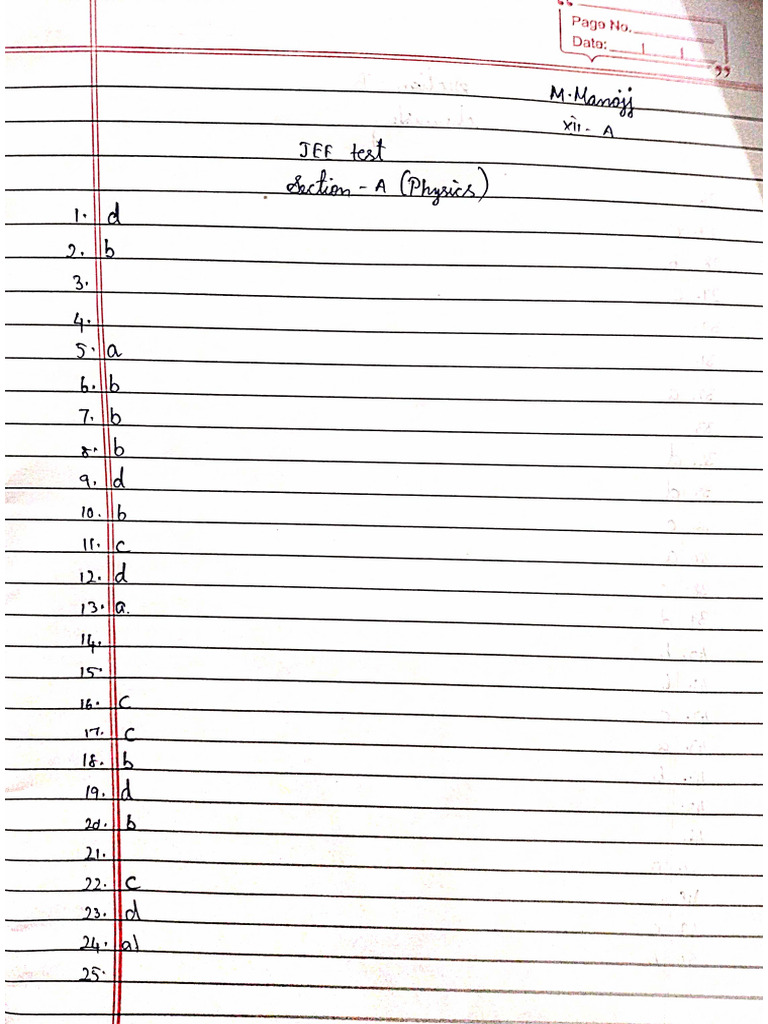 Page No.
Date:
M. Manojj
XII - A
JEE test
Section - A (Physics)
1. d
2. b
3.
4.
5. a
6. b
7. b
8. b
9. d
10. b
11. c
12. d
13. a.
14.
15.
16. c
17. c
18. b
19. d
20. b
21.
22. c
23. d
24. a)
25.